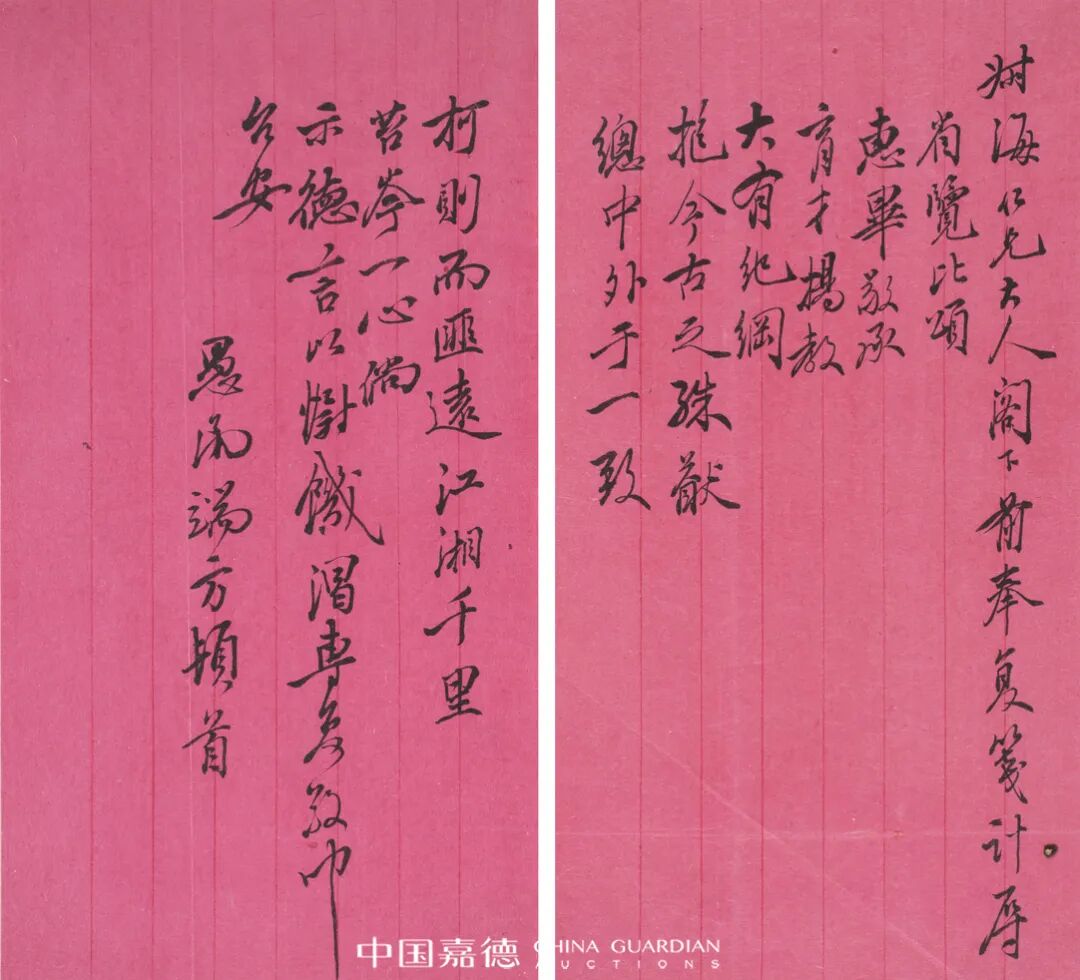 澍海仁兄大人阁下前奉复箋计辱
省覽比頌
惠畢敬承
育才揚教
大有纪綱
挹今古之殊猷
總中外于一致
柯則而匪遠江湘千里
苔岑一心倘
示德言以慰饑渴專复敬叩
台安
愚弟端方頓首
中国嘉德 CHINA GUARDIAN AUCTIONS